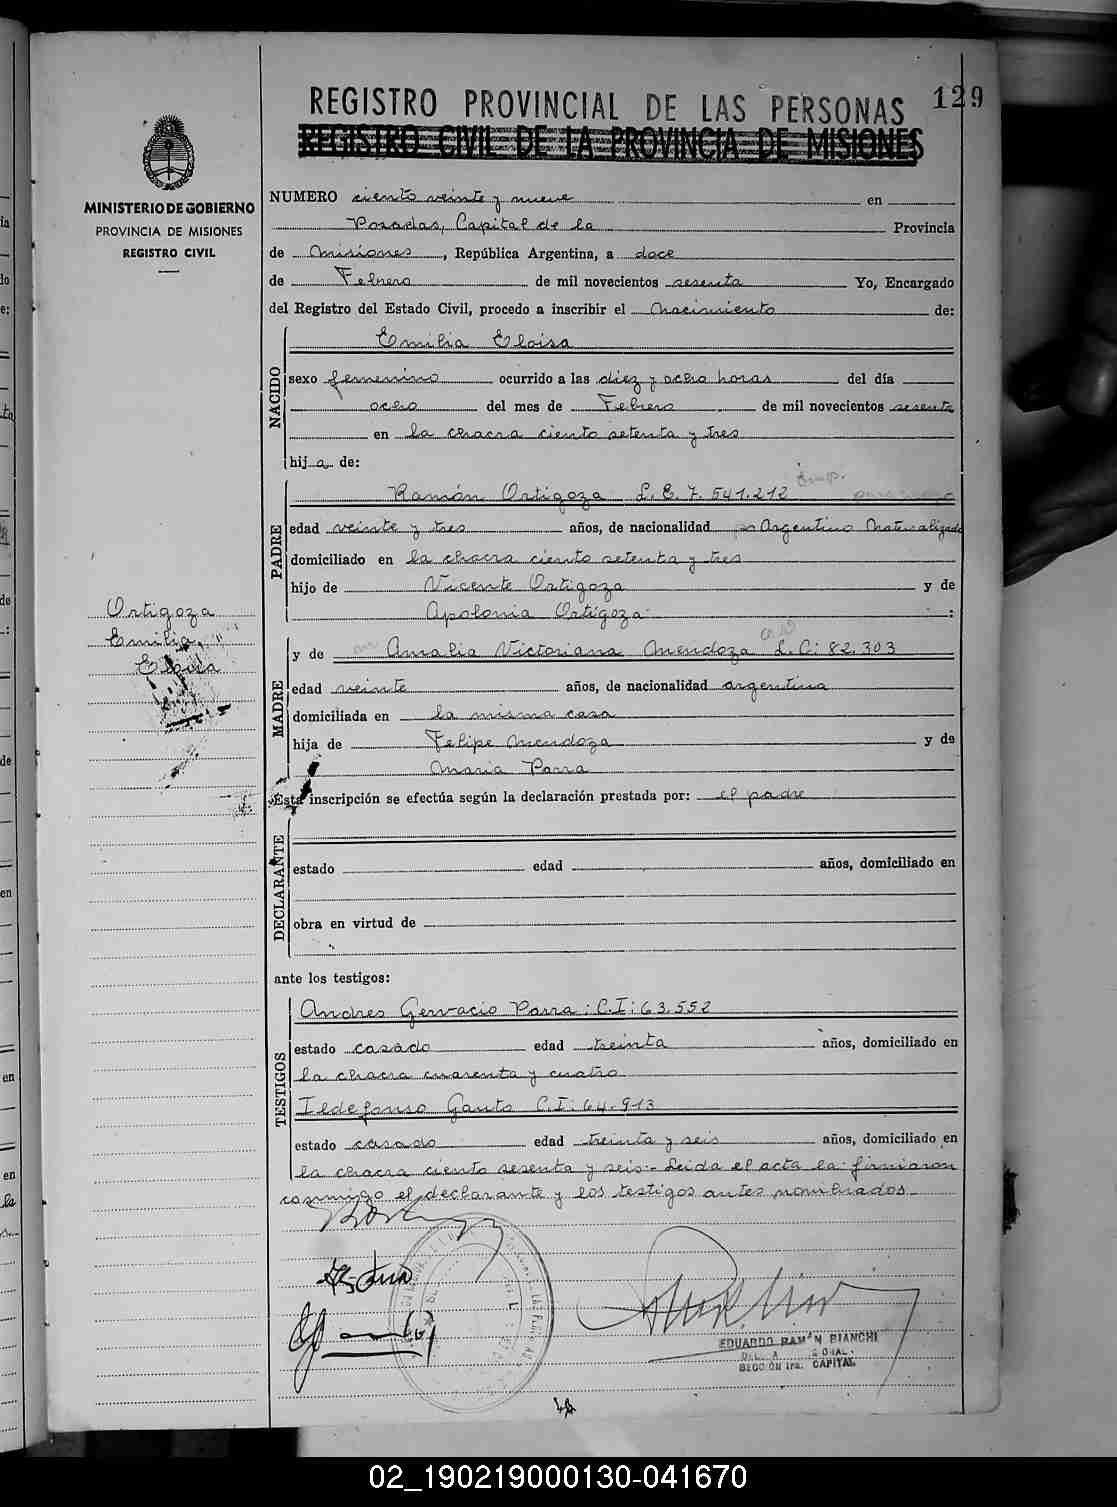 REGISTRO PROVINCIAL DE LAS PERSONAS 129
REGISTRO CIVIL DE LA PROVINCIA DE MISIONES
MINISTERIO DE GOBIERNO
PROVINCIA DE MISIONES
REGISTRO CIVIL
NUMERO ciento veinte y nueve en
Posadas, Capital de la Provincia
de Misiones, República Argentina, a doce
de Febrero de mil novecientos sesenta Yo, Encargado
del Registro del Estado Civil, procedo a inscribir el Nacimiento de:
NACIDO
Emilia Eloisa
sexo femenino ocurrido a las diez y ocho horas del día
ocho del mes de Febrero de mil novecientos sesenta
en la chacra ciento setenta y tres
hija de:
PADRE
Ramón Ortigoza L.E. 7.541.212
edad veinte y tres años, de nacionalidad Argentino Naturalizado
domiciliado en la chacra ciento setenta y tres
hijo de Vicente Ortigoza y de
Apolonia Ortigoza
Ortigoza
Emilia
Eloisa
MADRE
y de Amalia Victoriana Mendoza L.C: 82.303
edad veinte años, de nacionalidad argentina
domiciliada en la misma casa
hija de Felipe Mendoza y de
Maria Parra
Esta inscripción se efectúa según la declaración prestada por: el padre
DECLARANTE
estado edad años, domiciliado en
obra en virtud de
ante los testigos:
TESTIGOS
Andres Gervacio Parra: C.I: 63.552
estado casado edad treinta años, domiciliado en
la chacra cuarenta y cuatro
Ildefonso Gauto C.I: 64.913
estado casado edad treinta y seis años, domiciliado en
la chacra ciento sesenta y seis.- Leida el acta la firmaron
conmigo el declarante y los testigos antes nombrados
EDUARDO RAMON BIANCHI
SECCION 1ra. CAPITAL
02_190219000130-041670